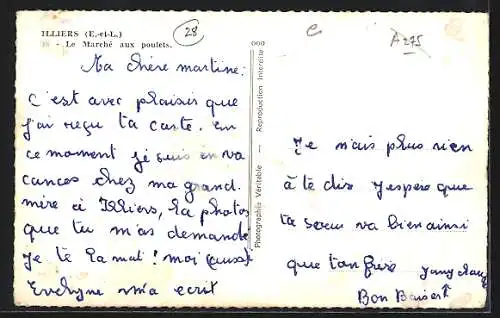 ILLIERS (E.-et-L.)
28
- Le Marché aux poulets.
000
e
A275
Ma chère martine:
C'est avec plaisir que
j'ai reçu ta carte. en
ce moment je suis en va
cances chez ma grand.
mère à Illiers, La photos
que tu m'as demandé
je te la met! moi aussi
Evelyne m'a ecrit
Photographie Véritable — Reproduction Interdite
Je n'ais plus rien
à te dir J'espère que
ta soeur va bien ainsi
que ton frère
Bon Baisers